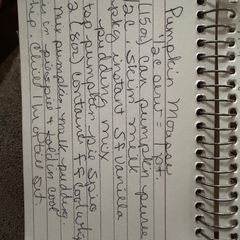 Pumpkin Mousse
1/2 c serv = pt.
(15 oz) can pumpkin puree
1/2 c skim milk
pkg instant SF vanilla
pudding mix
tsp pumpkin pie spice
2 (8 oz) containr FF cool whip
mix pumpkin, milk, pudding
in pie spice & fold in cool
hip. Chill 1 h or til set.